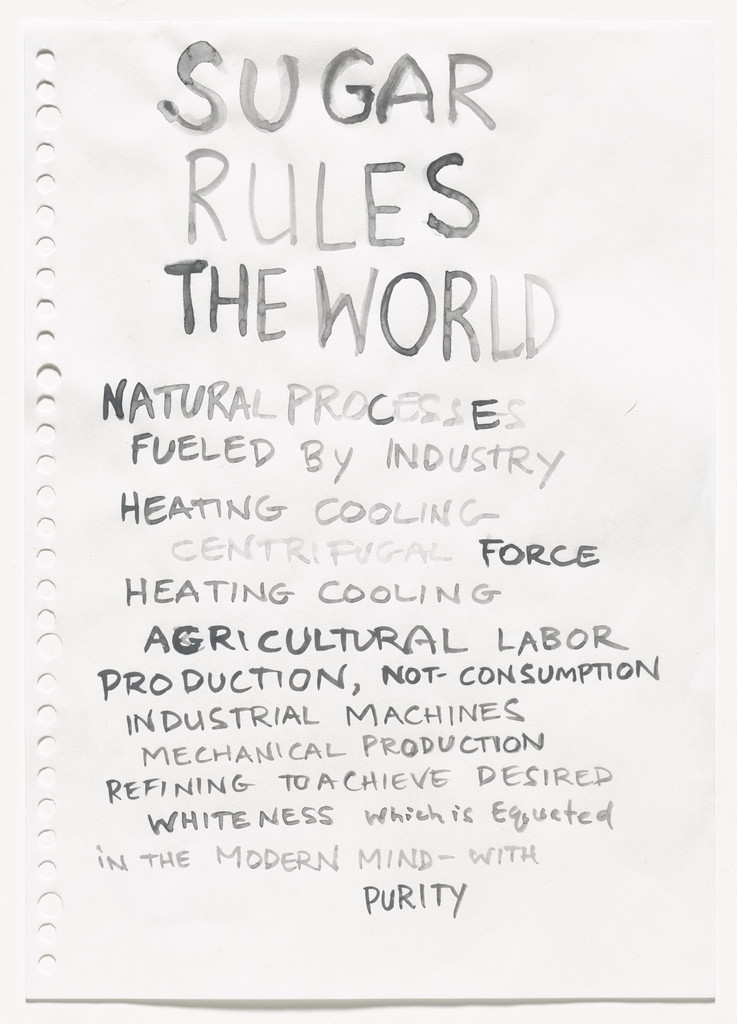 SUGAR
RULES
THE WORLD
NATURAL PROCESSES
FUELED BY INDUSTRY
HEATING COOLING
CENTRIFUGAL FORCE
HEATING COOLING
AGRICULTURAL LABOR
PRODUCTION, NOT- CONSUMPTION
INDUSTRIAL MACHINES
MECHANICAL PRODUCTION
REFINING TO ACHIEVE DESIRED
WHITENESS which is Equated
iN THE MODERN MIND- WITH
PURITY